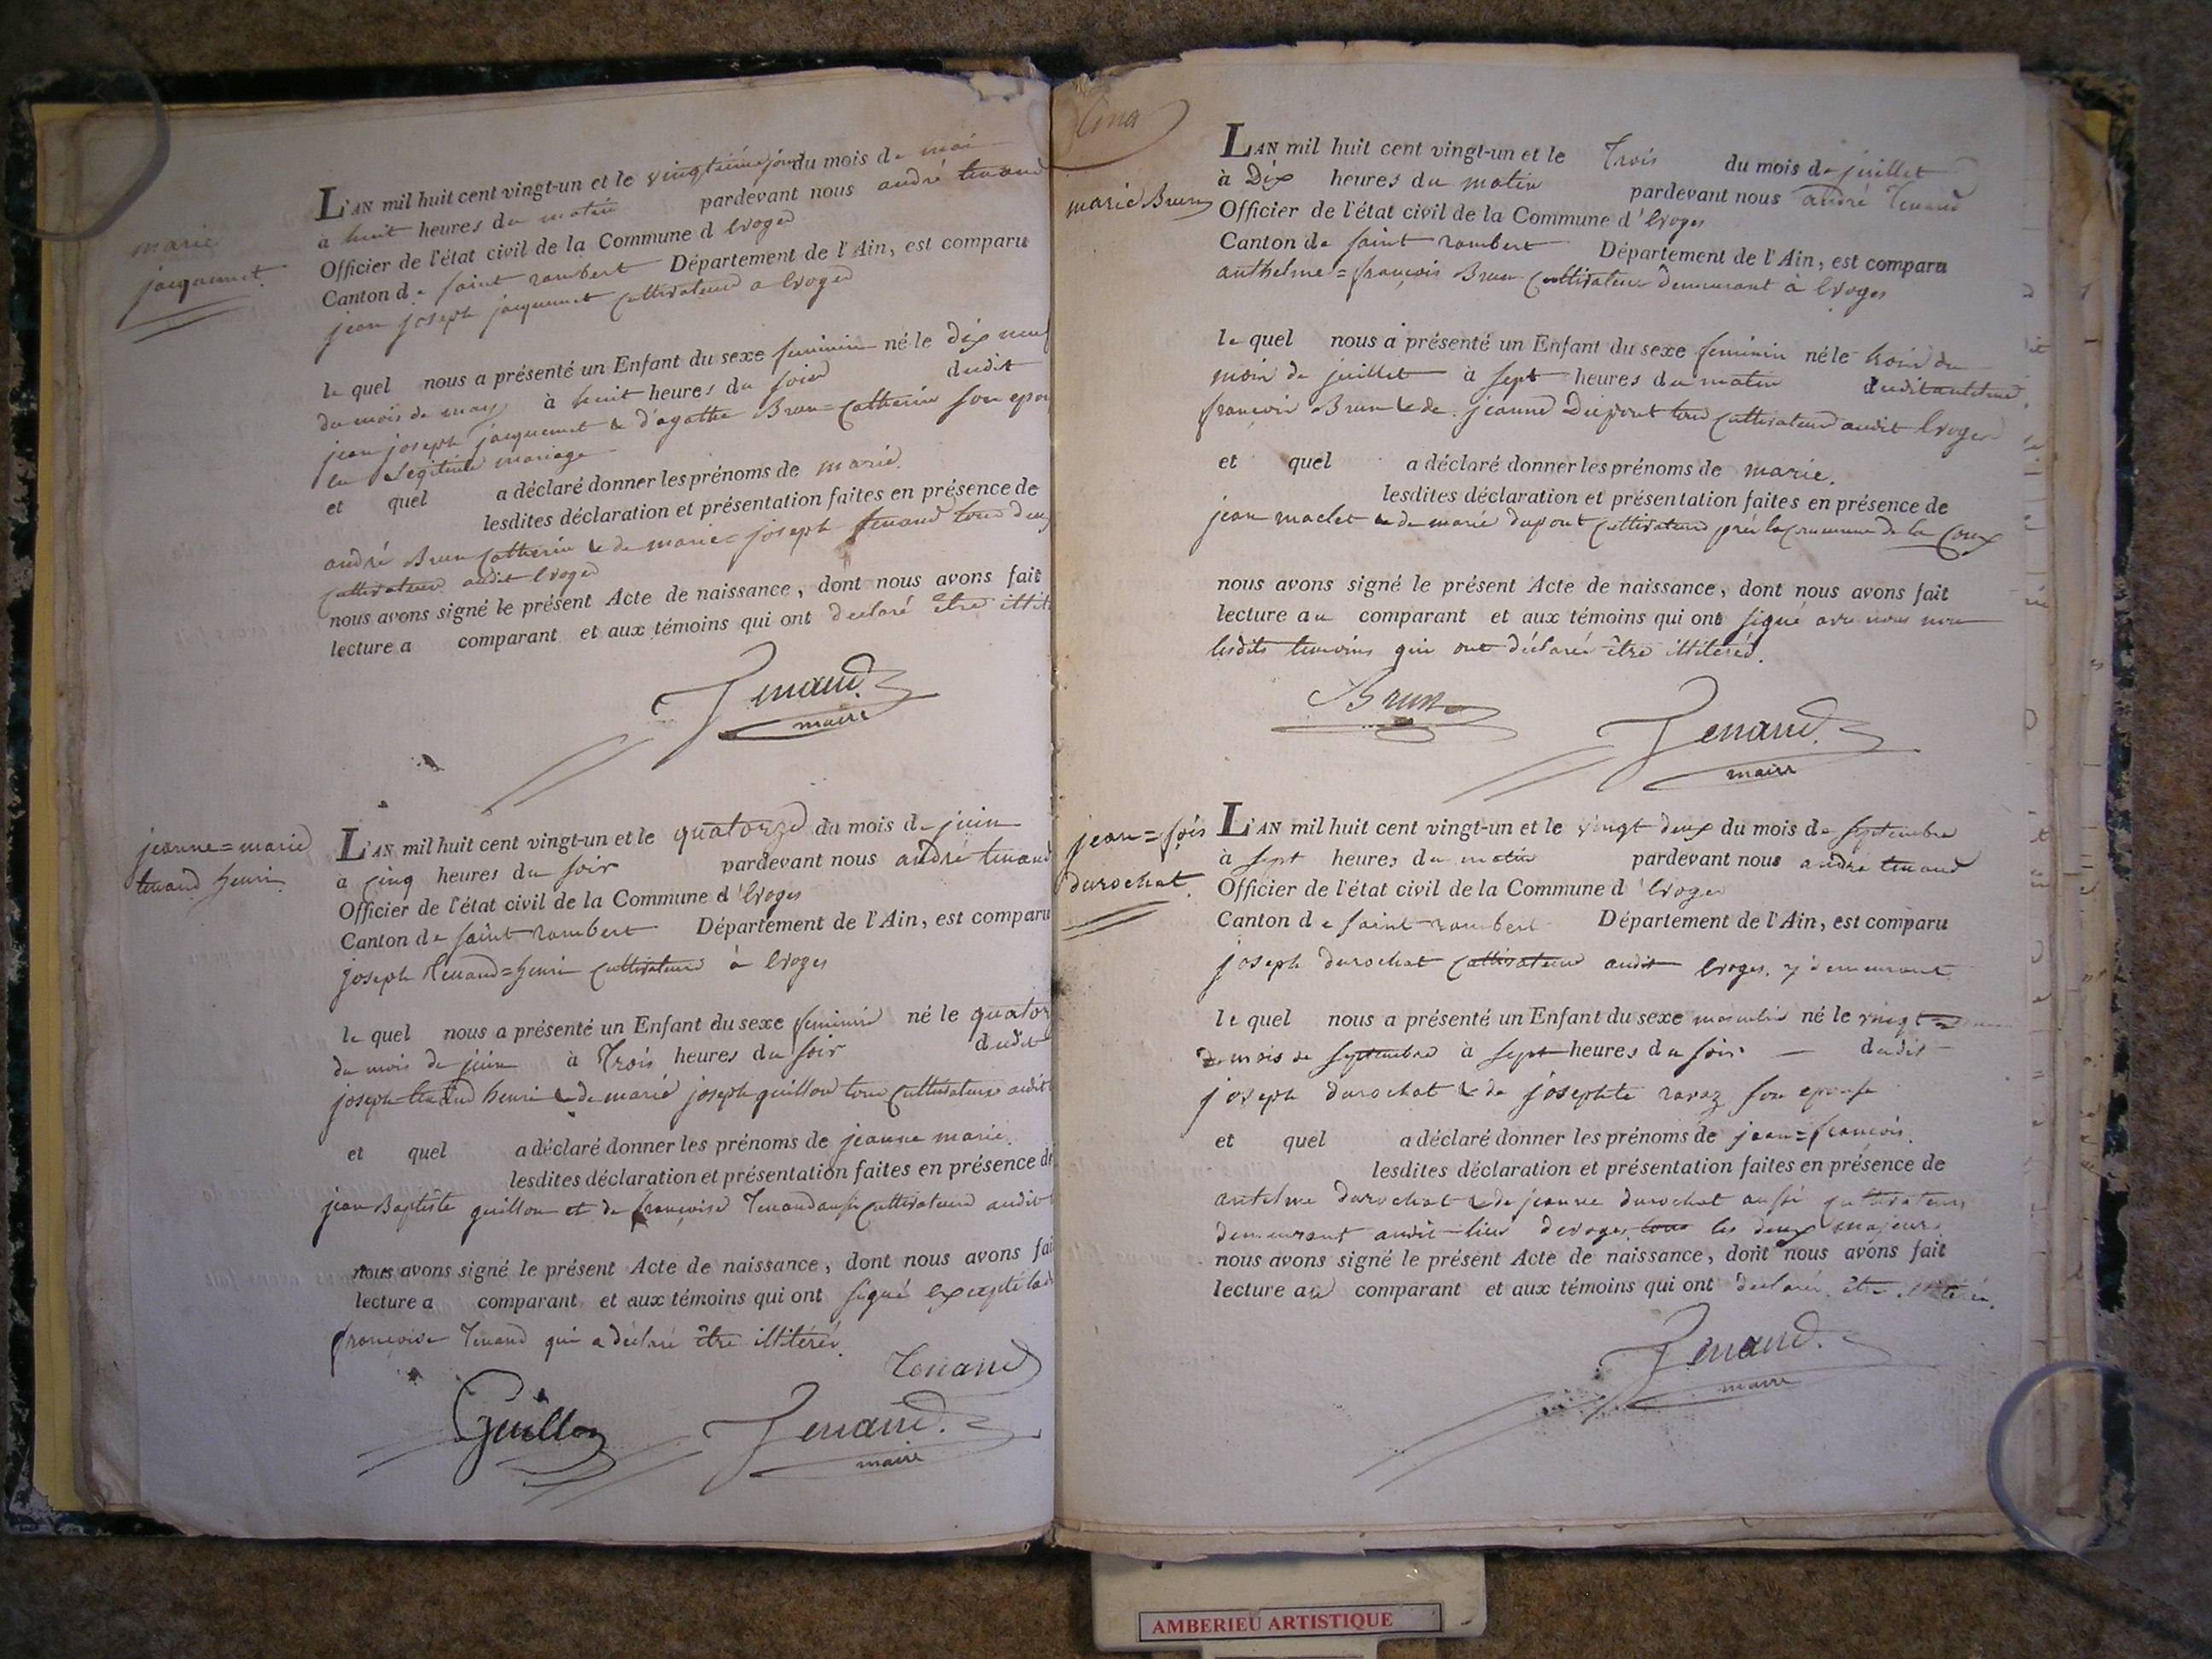 marie
jacquemet.
L'AN mil huit cent vingt-un et le vingtième jour du mois de mai
à huit heures du matin pardevant nous andré tenand
Officier de l'état civil de la Commune d Evoges
Canton de saint rambert Département de l'Ain, est comparu
jean joseph jacquemet cultivateur a Evoges
le quel nous a présenté un Enfant du sexe feminin né le dix neuf
du mois de may à huit heures du soir dudit
jean joseph jacquemet & d'agathe Brun=Catherin son epou
en Legitime mariage
et quel a déclaré donner les prénoms de marie.
lesdites déclaration et présentation faites en présence de
andré Brun Catherin & de marie=joseph tenand tous deux
cultivateurs audit Evoges
nous avons signé le présent Acte de naissance, dont nous avons fait
lecture a comparant et aux témoins qui ont declaré être illit
Tenand
maire
jeanne=marie
tenand henri.
L'AN mil huit cent vingt-un et le quatorze du mois de juin
à cinq heures du soir pardevant nous andré tenand
Officier de l'état civil de la Commune d'Evoges
Canton de saint rambert Département de l'Ain, est comparu
joseph Tenand=henri cultivateur à Evoges
le quel nous a présenté un Enfant du sexe feminin né le quator
du mois de juin à Trois heures du soir dudit
joseph tenand henri & de marie joseph guillon tous cultivateurs audit
et quel a déclaré donner les prénoms de jeanne marie.
lesdites déclaration et présentation faites en présence de
jean Baptiste guillon et de françoise Tenand aussi cultivateurs audit
nous avons signé le présent Acte de naissance, dont nous avons fai
lecture a comparant et aux témoins qui ont signé excepté lad
françoise Tenand qui a déclaré être illitérée.
Tenand
Guillon
Tenand
maire
marie Brun
L'AN mil huit cent vingt-un et le Trois du mois de juillet
à Dix heures du matin pardevant nous andré Tenand
Officier de l'état civil de la Commune d'Evoges
Canton de saint rambert Département de l'Ain, est comparu
anthelme=françois Brun cultivateur demeurant à Evoges
le quel nous a présenté un Enfant du sexe feminin né le trois du
mois de juillet à sept heures du matin dudit antelme
françois Brun & de jeanne Dupont tous cultivateurs audit Evoges
et quel a déclaré donner les prénoms de marie.
lesdites déclaration et présentation faites en présence de
jean maclet & de marie dupont cultivateurs la Commune de la Coux
nous avons signé le présent Acte de naissance, dont nous avons fait
lecture au comparant et aux témoins qui ont signé avec nous non
lesdits temoins qui ont déclaré être illiterés.
Brun
Tenand
maire
jean=fois
durochat.
L'AN mil huit cent vingt-un et le vingt deux du mois de septembre
à sept heures du matin pardevant nous andré tenand
Officier de l'état civil de la Commune d'Evoges
Canton de saint rambert Département de l'Ain, est comparu
joseph durochat cultivateur audit Evoges. y demeurant
le quel nous a présenté un Enfant du sexe masculin né le vingt
du mois de septembre à sept heures du soir dudit
joseph durochat & de josephte ravaz son epouse
et quel a déclaré donner les prénoms de jean=françois.
lesdites déclaration et présentation faites en présence de
antelme durochat & de jeanne durochat aussi cultivateurs
demeurant audit lieu devoges tous les deux majeurs
nous avons signé le présent Acte de naissance, dont nous avons fait
lecture au comparant et aux témoins qui ont declaré être illitérés.
Tenand
maire
AMBERIEU ARTISTIQUE